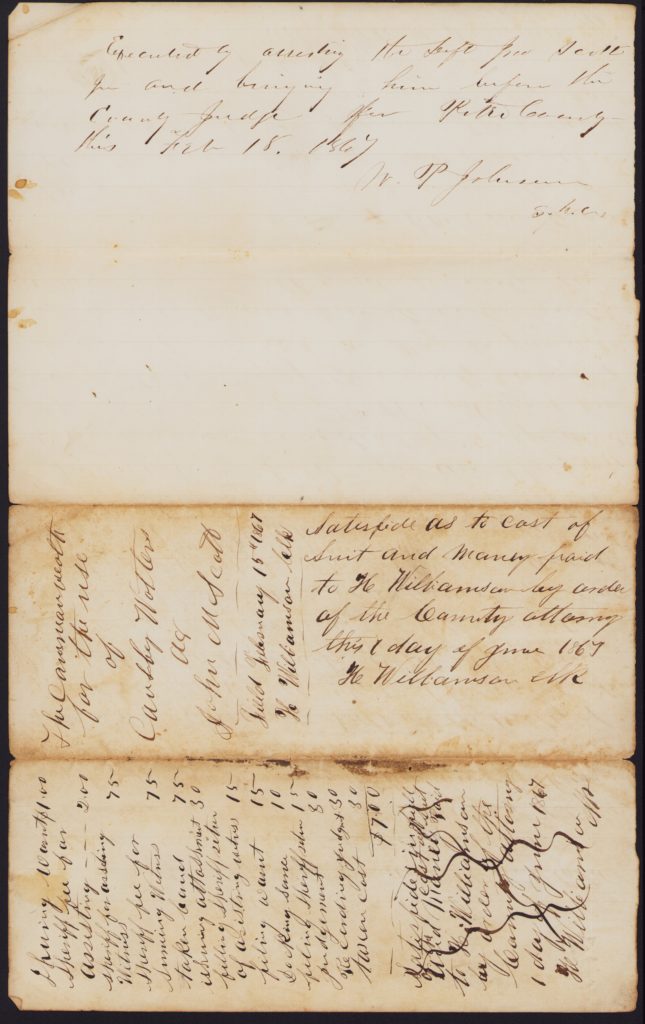 Executed by arresting the Deft Jno Scott
and bringing him before the
County Judge for Pike County
this Feb 18. 1867
W. P. Johnson
The Commonwealth
for the use
of
Causby Wolters
as
John M Scott
Feild February 15th 1867
H Williamson Clk
Satisfide as to cost of
Suit and Maney paid
to H Williamson by order
of the County attorny
this 1 day of June 1867
H Williamson Clk
Isuing Warnt $1.00
Sheriff fee for
assisting - - - - 2.00
Sheriff for aresting
Witness 75
Sheriff fee for
suming Witns 75
taken band 75
ishuing attachment 30
filing Sheriff retur
of aresting witns 15
filing warnt 15
Docking same 10
filing Sheriff return 15
judgement 30
Recording judgt 30
taxen Cost 30
$7.00
to H Williamson
by order of the
County attorny
1 day of June 1867
H Williamson Clk